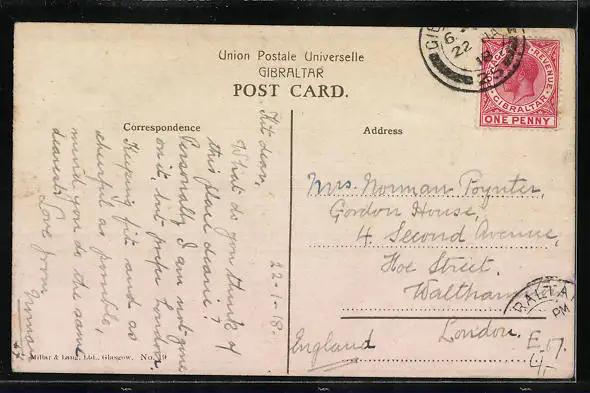 Union Postale Universelle
GIBRALTAR
POST CARD.
Correspondence
Address
22-1-18.
Kit dear,
What do you think of
this place dearie?
Personally I am not gone
on it, but prefer London.
Keeping fit and as
cheerful as possible,
mind you do the same
dearest.
Love from
Norman
Millar & Lang, Ltd., Glasgow. No.
Mrs. Norman Poynter,
Gordon House,
4 Second Avenue,
Hoe Street,
Waltham
London.
E.17.
England
22 JA 18
POSTAGE & REVENUE
GIBRALTAR
ONE PENNY
RALTA
PM